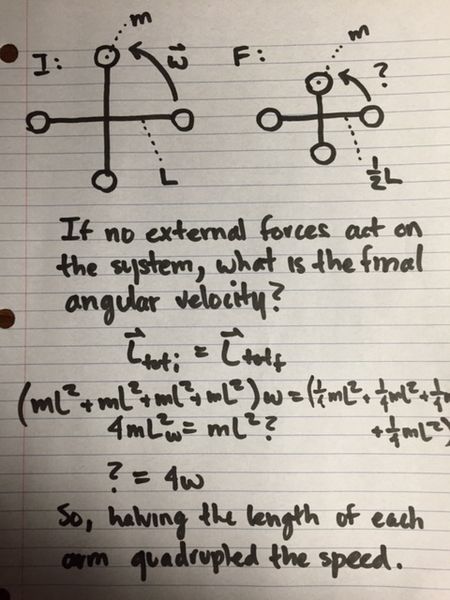 I:
m
ω
L
F:
m
?
½L
If no external forces act on
the system, what is the final
angular velocity?
L⃗tot,i = L⃗tot,f
(mL²+mL²+mL²+mL²)ω=(¼mL²+¼mL²+¼
+¼mL²)
4mL²ω = mL²?
? = 4ω
So, halving the length of each
arm quadrupled the speed.